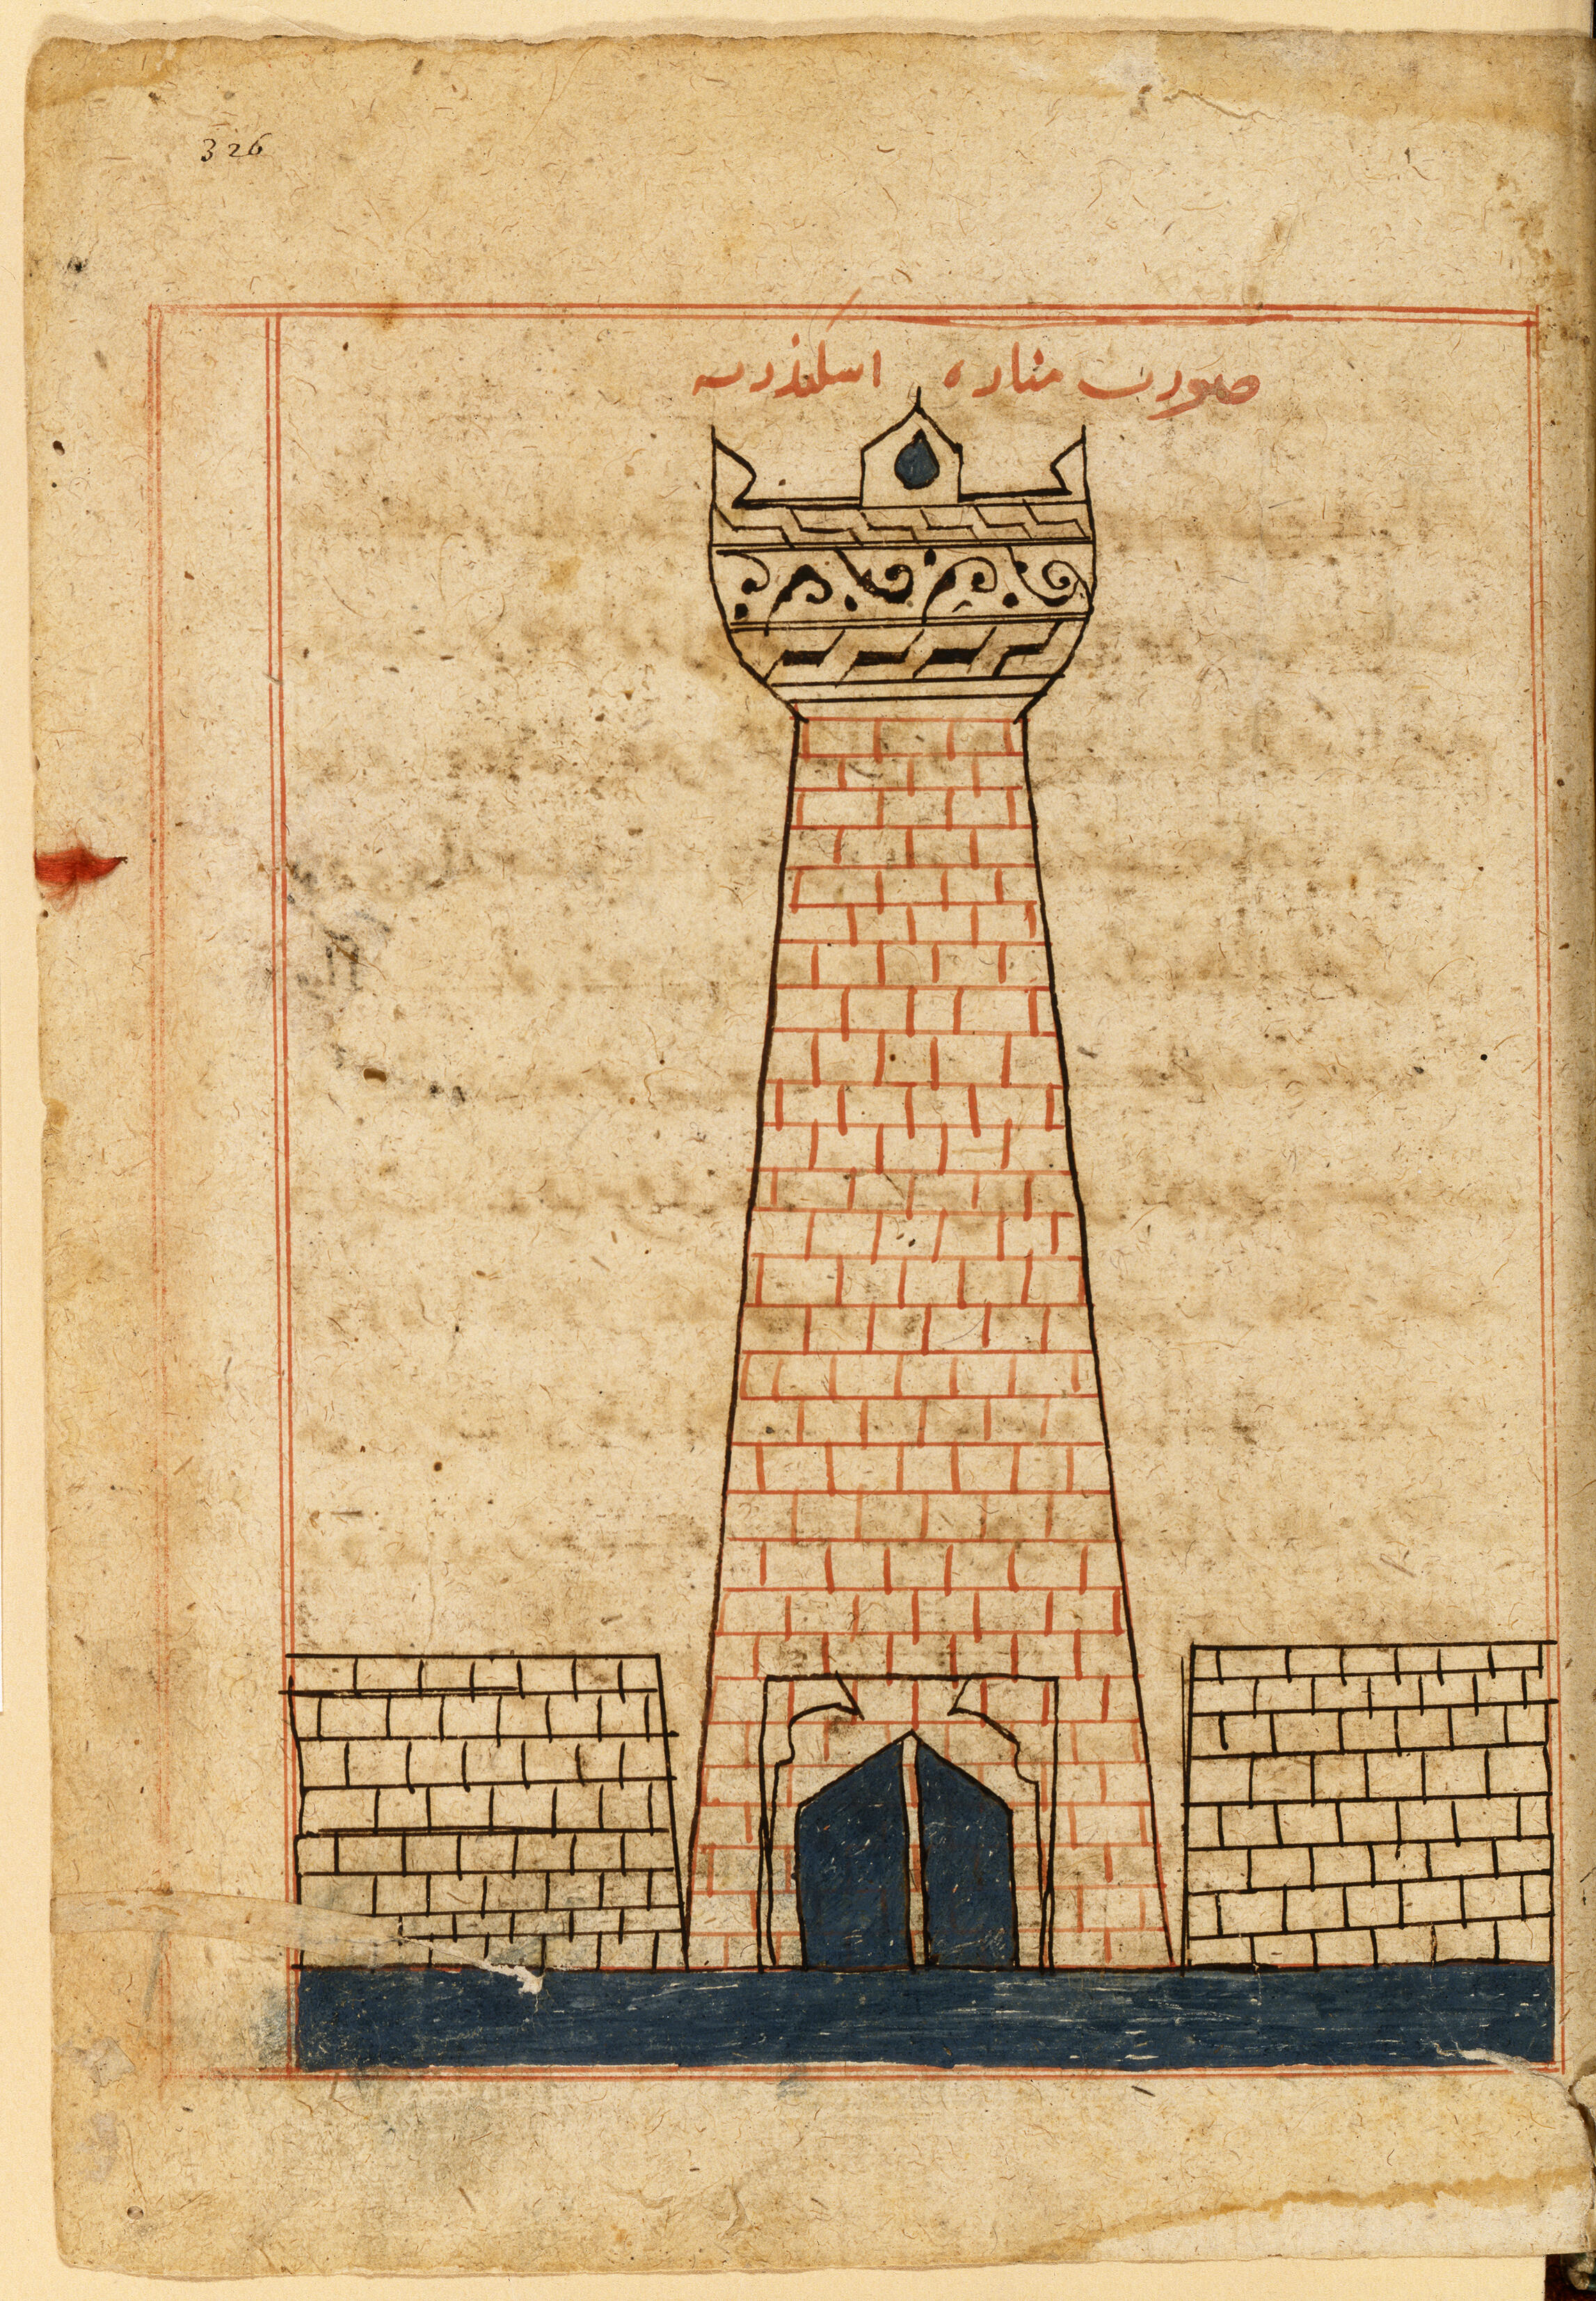 326
صورت مناره اسکندریه